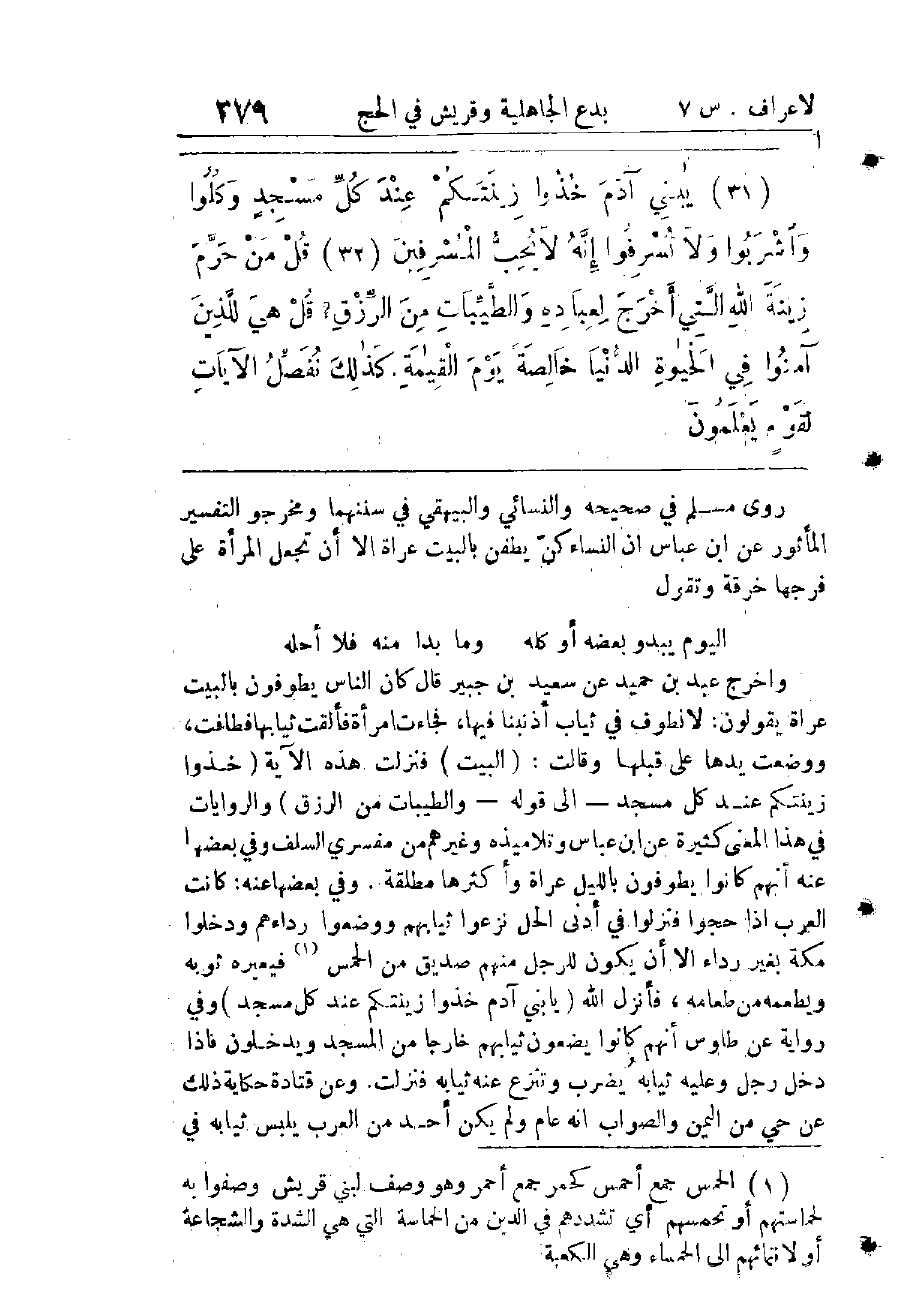 لاعراف . س ٧ بدع الجاهلية وقريش في الحج ٣٧٩
(٣١) يٰبني آدَمَ خُذُوا زِينَتَكُمْ عِنْدَ كُلِّ مَسْجِدٍ وَكُلُوا
وَاَشْرَبُوا وَلاَ تُسْرِفُوا إِنَّهُ لاَيُحِبُّ الْمُسْرِفِينَ (٣٢) قُلْ مَنْ حَرَّمَ
زِينَةَ اللهِ الَّتِي أَخْرَجَ لِعِبادِهِ وَالطَّيِّبَاتِ مِنَ الرِّزْقِ؟ قُلْ هِيَ لِلَّذِينَ
آمَنُوا فِي الْحَيٰوةِ الدُّنْيَا خَالِصَةً يَوْمَ الْقِيٰمَةِ. كَذٰلِكَ نُفَصِّلُ الآيَاتِ
لِقَوْمٍ يَعْلَمُونَ
روى مسلم في صحيحه والنسائي والبيهقي في سننهما ومخرجو التفسير
المأثور عن ابن عباس ان النساء كنّ يطفن بالبيت عراة الا أن تجعل المرأة على
فرجها خرقة وتقول
اليوم يبدو بعضه أو كله وما بدا منه فلا أحله
واخرج عبد بن حميد عن سعيد بن جبير قال كان الناس يطوفون بالبيت
عراة يقولون: لانطوف في ثياب أذنبنا فيها، فجاءت امرأة فألقت ثيابها فطافت،
ووضعت يدها على قبلها وقالت : (البيت) فنزلت هذه الآية (خذوا
زينتكم عند كل مسجد — الى قوله — والطيبات من الرزق) والروايات
في هذا المعنى كثيرة عن ابن عباس وتلاميذه وغيرهم من مفسري السلف وفي بعضها
عنه أنهم كانوا يطوفون بالليل عراة وأكثرها مطلقة. وفي بعضها عنه: كانت
العرب اذا حجوا فنزلوا في أدنى الحل نزعوا ثيابهم ووضعوا رداءهم ودخلوا
مكة بغير رداء الا أن يكون للرجل منهم صديق من الحمس (١) فيعيره ثوبه
ويطعمه من طعامه ، فأنزل الله (يابني آدم خذوا زينتكم عند كل مسجد) وفي
رواية عن طاوس أنهم كانوا يضعون ثيابهم خارجا من المسجد ويدخلون فاذا
دخل رجل وعليه ثيابه يُضرب وتنزع عنه ثيابه فنزلت. وعن قتادة حكاية ذلك
عن حي من اليمن والصواب انه عام ولم يكن أحد من العرب يلبس ثيابه في
(١) الحمس جمع أحمس كحمر جمع أحمر وهو وصف لبني قريش وصفوا به
لحماستهم أو تحمسهم أي تشددهم في الدين من الحماسة التي هي الشدة والشجاعة
أو لانتمائهم الى الحمساء وهي الكعبة